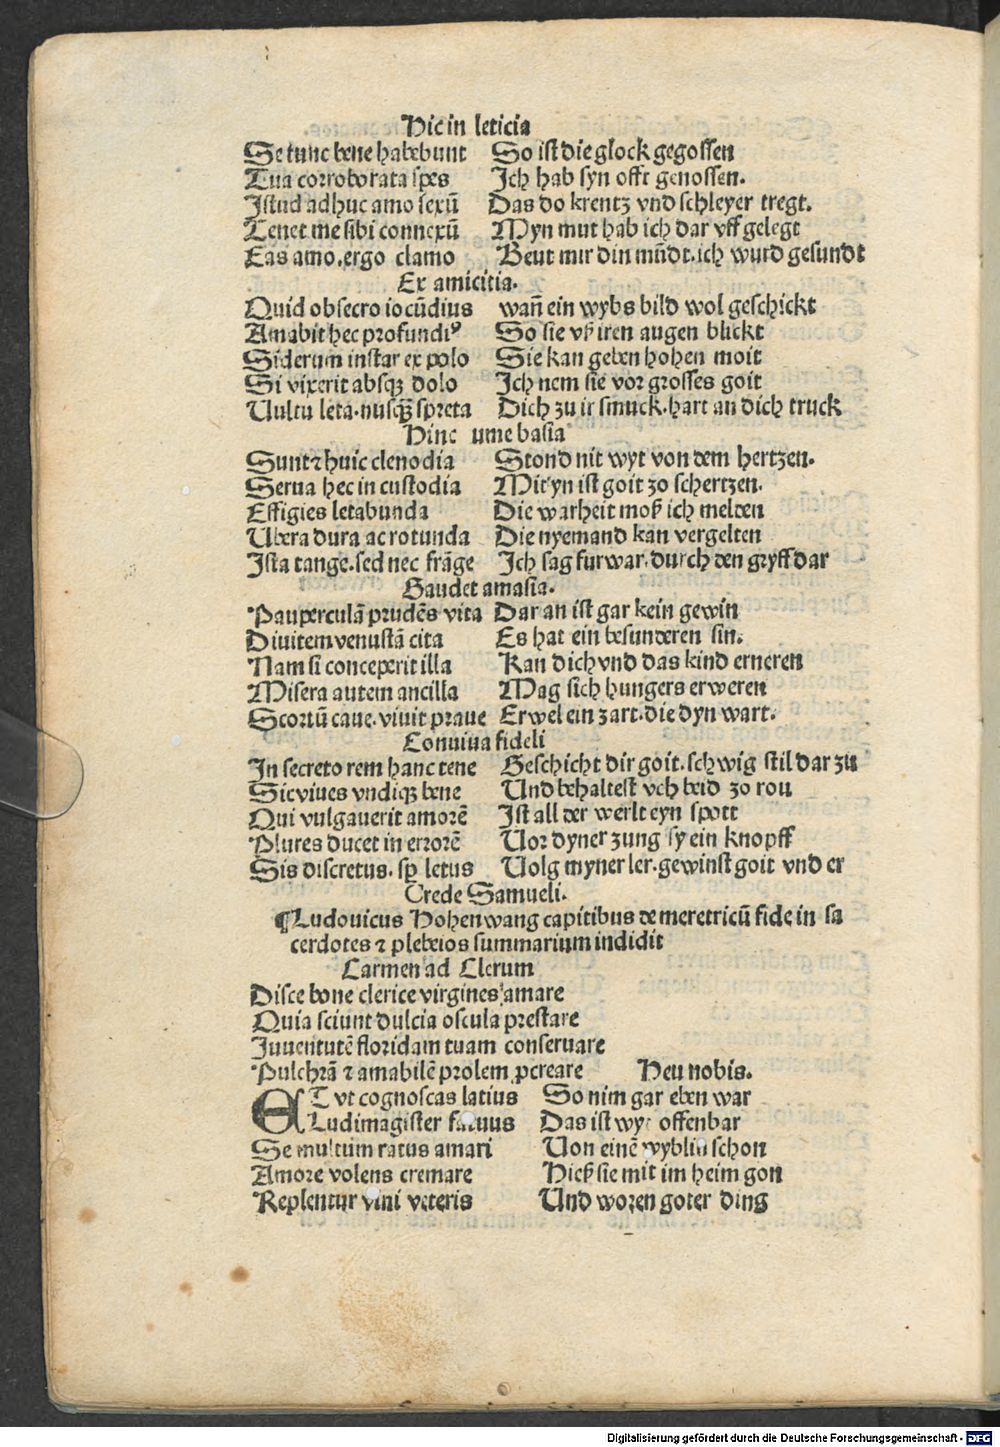 Hic in leticia
Se tunc bene habebunt So ist die glock gegossen
Tua corroborata spes Ich hab syn offt genossen.
Istud adhuc amo sexū Das do krentz vnd schleyer tregt.
Tenet me sibi connexū Myn mut hab ich dar vff gelegt
Eas amo. ergo clamo Beut mir din mūdt. ich wurd gesundt
Ex amicitia.
Quid obsecro iocūdius wañ ein wybs bild wol geschickt
Amabit hec profundiꝰ So sie vß iren augen blickt
Siderum instar ex polo Sie kan geben hohen moit
Si vixerit absqꝫ dolo Ich nem sie vor grosses goit
Uultu leta. nusqꝫ̄ spreta Dich zu ir smuck. hart an dich truck
Hinc ume basia
Sunt ⁊ huic clenodia Stond nit wyt von dem hertzen.
Serua hec in custodia Mit yn ist goit zo schertzen.
Effigies letabunda Die warheit moß ich melden
Ubera dura ac rotunda Die nyemand kan vergelten
Ista tange. sed nec frāge Ich sag furwar. durch den gryff dar
Gaudet amasia.
Pauperculā prudēs vita Dar an ist gar kein gewin
Diuitem venustā cita Es hat ein besunderen sin.
Nam si conceperit illa Kan dich vnd das kind erneren
Misera autem ancilla Mag sich hungers erweren
Scortū caue. viuit praue Erwel ein zart. die dyn wart.
Conuiua fideli
In secreto rem hanc tene Geschicht dir goit. schwig stil dar zu
Sic viues vndiqꝫ bene Und behaltest vch beid zo rou
Qui vulgauerit amorē Ist all der werlt eyn spott
Plures ducet in errorē Uor dyner zung sy ein knopff
Sis discretus. sꝑ letus Uolg myner ler. gewinst goit vnd er
Crede Samueli.
¶Ludouicus Hohenwang capitibus de meretricū fide in sa
cerdotes ⁊ plebeios summarium indidit
Carmen ad Clerum
Disce bone clerice virgines amare
Quia sciunt dulcia oscula prestare
Iuuentutē floridam tuam conseruare
Pulchrā ⁊ amabilē prolem ꝓcreare Heu nobis.
ETvt cognoscas latius So nim gar eben war
Ludimagister fatuus Das ist wyt offenbar
Se multum ratus amari Uon einē wyblin schon
Amore volens cremare Hieß sie mit im heim gon
Replentur vini veteris Und woren goter ding
Digitalisierung gefördert durch die Deutsche Forschungsgemeinschaft - DFG